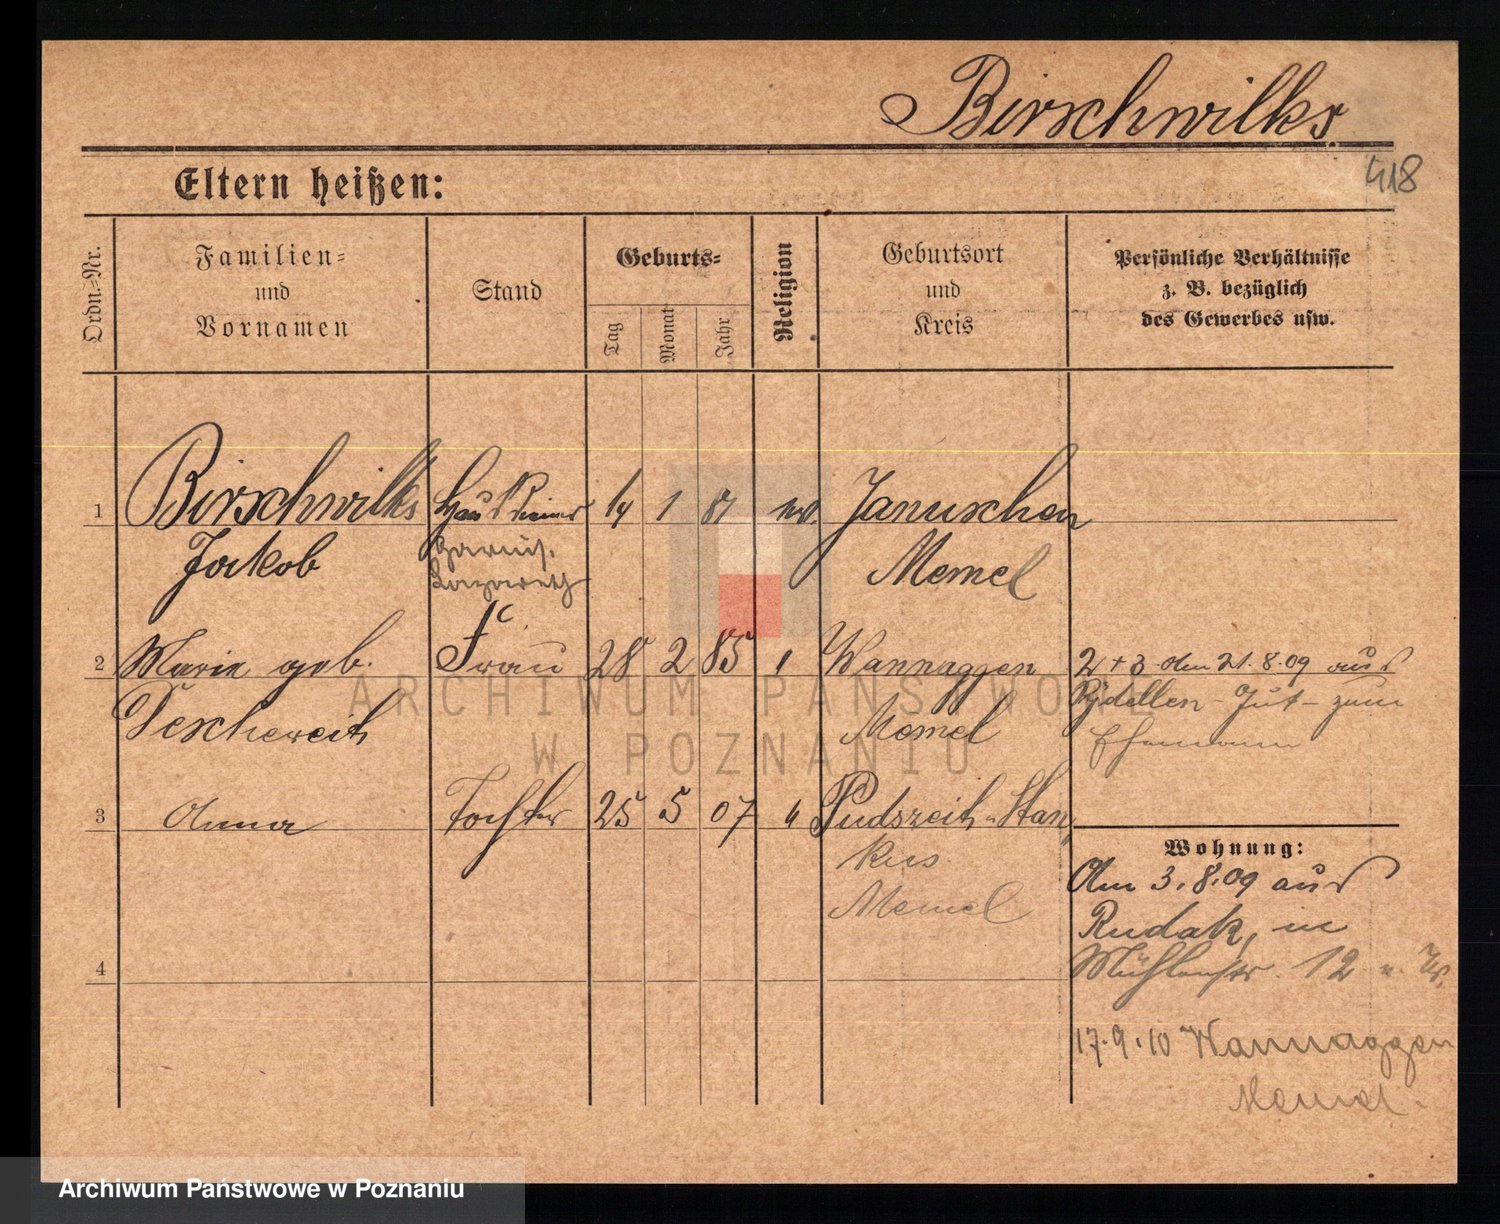 Birschwilks
418
Eltern heißen:
Ordn.-Nr.
Familien-
und
Vornamen
Stand
Geburts-
Tag
Monat
Jahr
Religion
Geburtsort
und
Kreis
Persönliche Verhältnisse
z. B. bezüglich
des Gewerbes usw.
1 Birschwilks Hausdiener 14 1 81 ev. Januschen
Jakob Garnis. Memel
Lazareth
2 Marie geb. Frau 28 2 85 " Wannaggen 2 + 3 am 21.8.09 aus
Deschereit Memel zum
Ehemann
3 Anna Tochter 25 5 07 " Pudszeit-Stan
kus
Memel
Wohnung:
Am 3.8.09 aus
Rudak, in
Mühlenstr. 12
4
17.9.10 Wannaggen
Memel.
ARCHIWUM PAŃSTWOWE
W POZNANIU
Archiwum Państwowe w Poznaniu